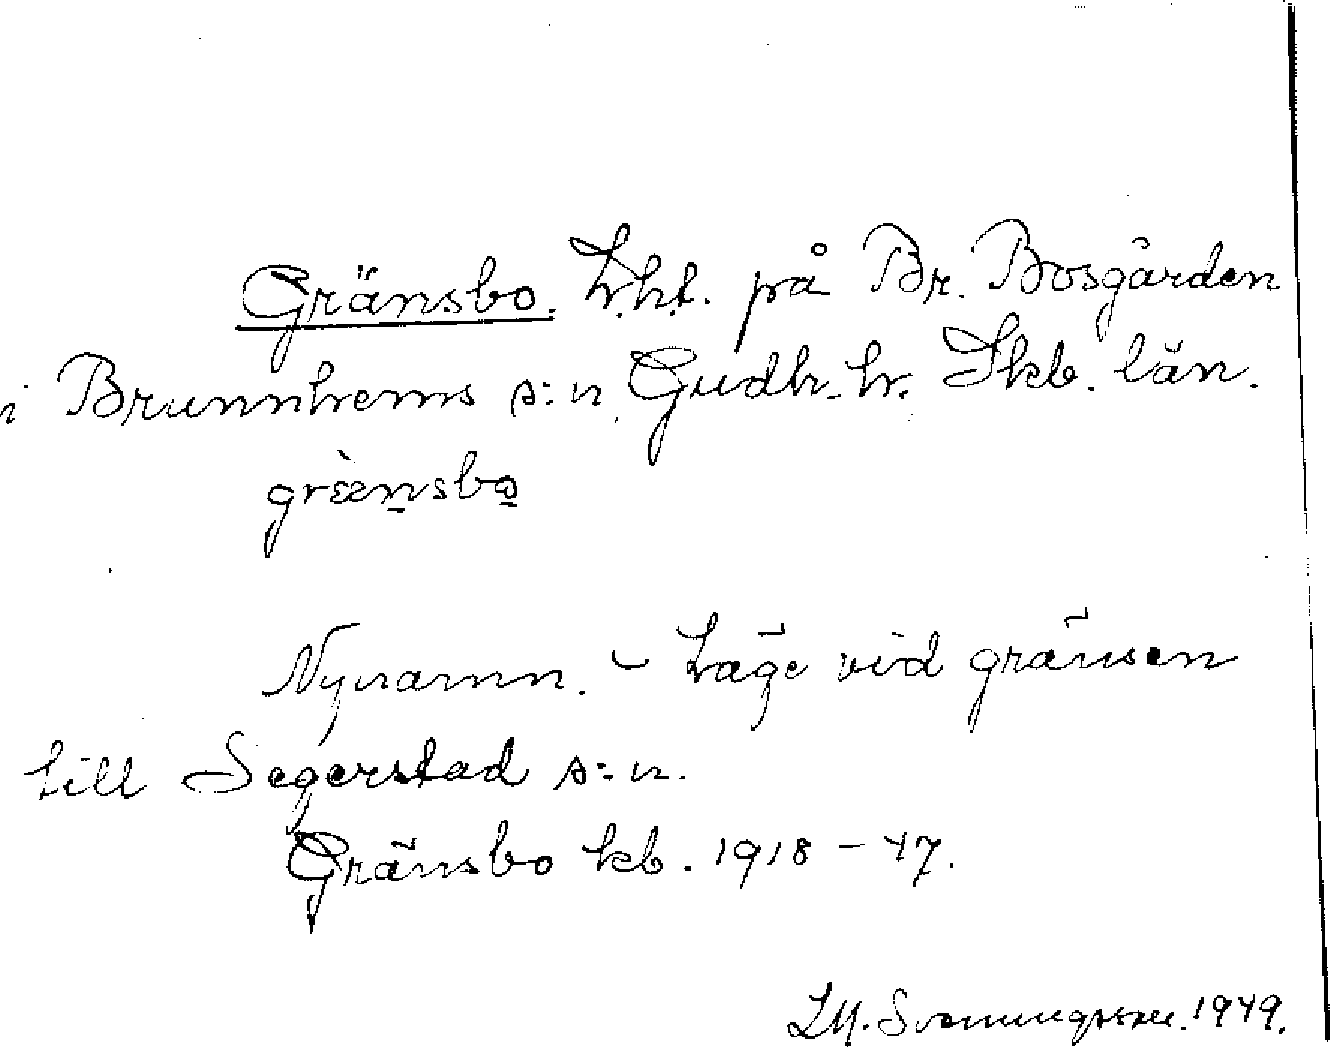 Gränsbo. Lht. på Br. Bosgården
i Brunnhems s:n. Gudh. hr. Skb. län.
græ̀nsbo
Nynamn. - Läge vid gränsen
till Segerstad s:n.
Gränsbo kb. 1918 - 47.
Svenningsson. 1949.